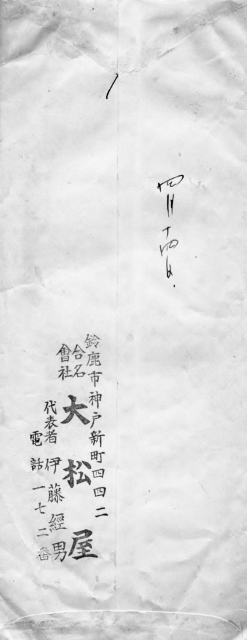 四月十四日
鈴鹿市神戸新町四四二
合名會社 大松屋
代表者 伊藤經男
電話一七二番